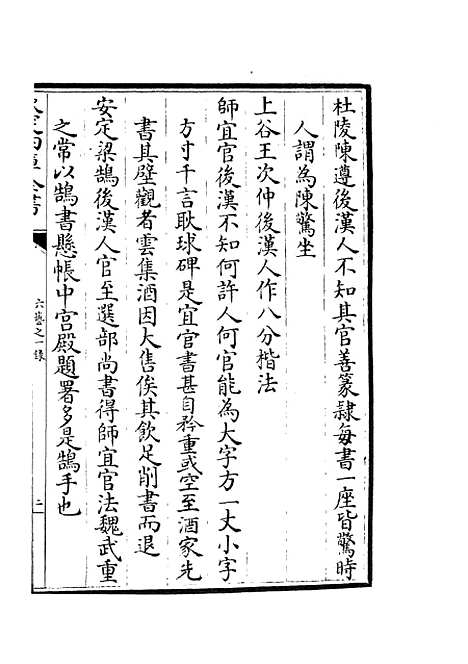 杜陵陳遵後漢人不知其官善篆隸每書一座皆驚時
人謂為陳驚坐
上谷王次仲後漢人作八分楷法
師宜官後漢不知何許人何官能為大字方一丈小字
方寸千言耿球碑是宜官書甚自矜重或空至酒家先
書其壁觀者雲集酒因大售俟其飲足削書而退
安定梁鵠後漢人官至選部尚書得師宜官法魏武重
之常以鵠書懸帳中宫殿題署多是鵠手也
欽定四庫全書
六藝之一錄
二